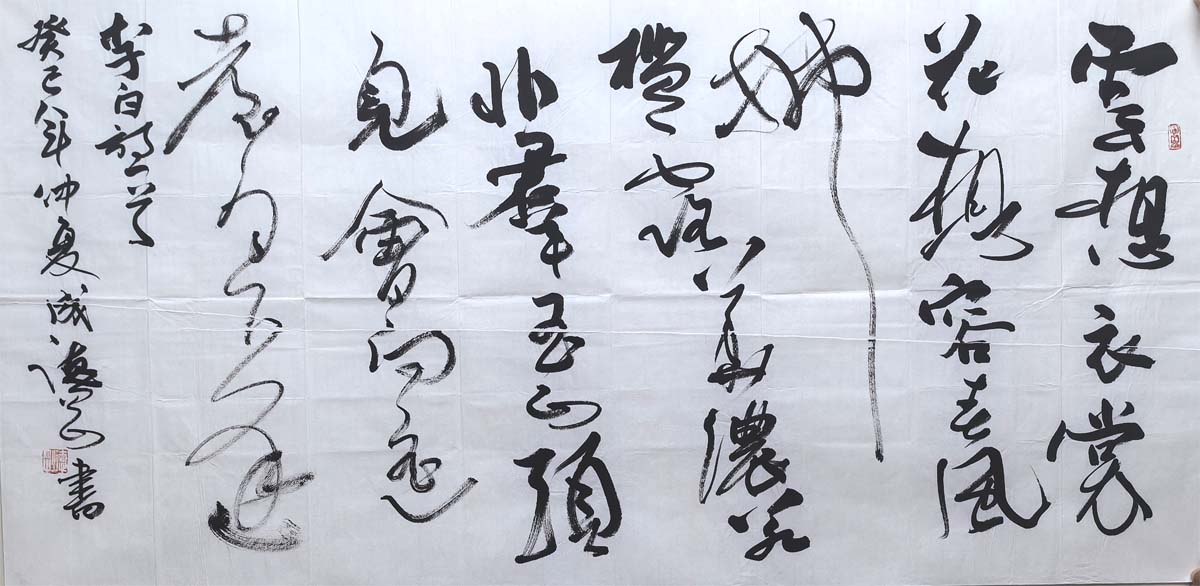 雲想衣裳
花想容春風
拂
檻露華濃若
非羣玉山頭
見會向瑶
臺月下逢
李白詩一首
癸巳年仲夏成書